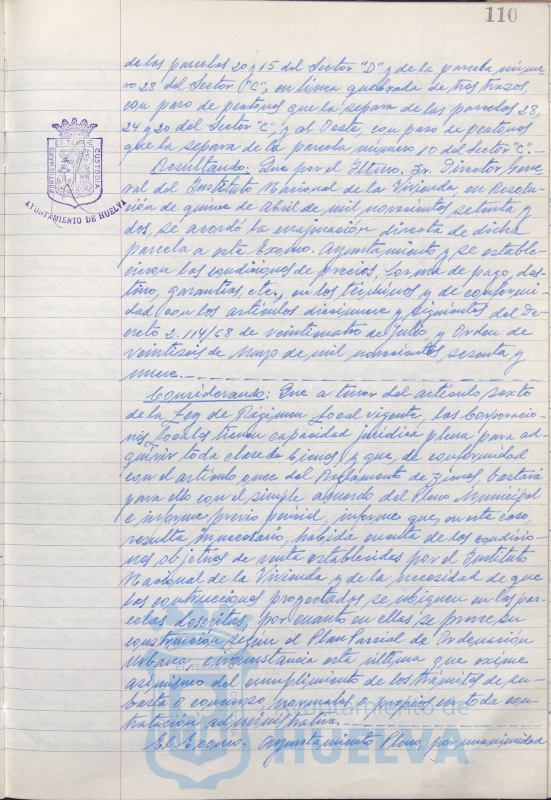 110
de las parcelas 20 y 15 del Sector "D" y de la parcela núme-
ro 28 del Sector "C", en línea quebrada de tres trazos,
con paso de peatones que la separa de las parcelas 28,
24 y 20 del Sector "C", y al Oeste, con paso de peatones
que la separa de la parcela número 10 del Sector "C".-
Resultando: Que por el Iltmo. Sr. Director Gene-
ral del Instituto Nacional de la Vivienda, en Resolu-
ción de quince de abril de mil novecientos setenta y
dos, se acordó la enajenación directa de dicha
parcela a este Excmo. Ayuntamiento y se estable-
cieron las condiciones de precios, forma de pago, des-
tino, garantías, etc., en los términos y de conformi-
dad con los artículos diecinueve y siguientes del De-
creto 2.114/68 de veinticuatro de Julio, y Orden de
veintiséis de Mayo de mil novecientos sesenta y
nueve.
Considerando: Que a tenor del artículo sexto
de la Ley de Régimen Local vigente, las Corporacio-
nes Locales tienen capacidad jurídica plena para ad-
quirir toda clase de bienes y que, de conformidad
con el artículo once del Reglamento de Bienes, bastará
para ello con el simple acuerdo del Pleno Municipal
e informe previo pericial, informe que, en este caso,
resulta innecesario, habida cuenta de las condicio-
nes objetivas de venta establecidas por el Instituto
Nacional de la Vivienda y de la necesidad de que
las construcciones proyectadas se ubiquen en las par-
celas descritas, por cuanto en ellas se prevee su
construcción según el Plan Parcial de Ordenación
Urbana, circunstancia esta última que exime
asimismo del cumplimiento de los trámites de su-
basta o concurso, normales o propios en toda con-
tratación administrativa.
El Excmo. Ayuntamiento Pleno, por unanimidad
PORTUS MARIS ET TERRAE CUSTODIA
AYUNTAMIENTO DE HUELVA
Ayuntamiento de
HUELVA